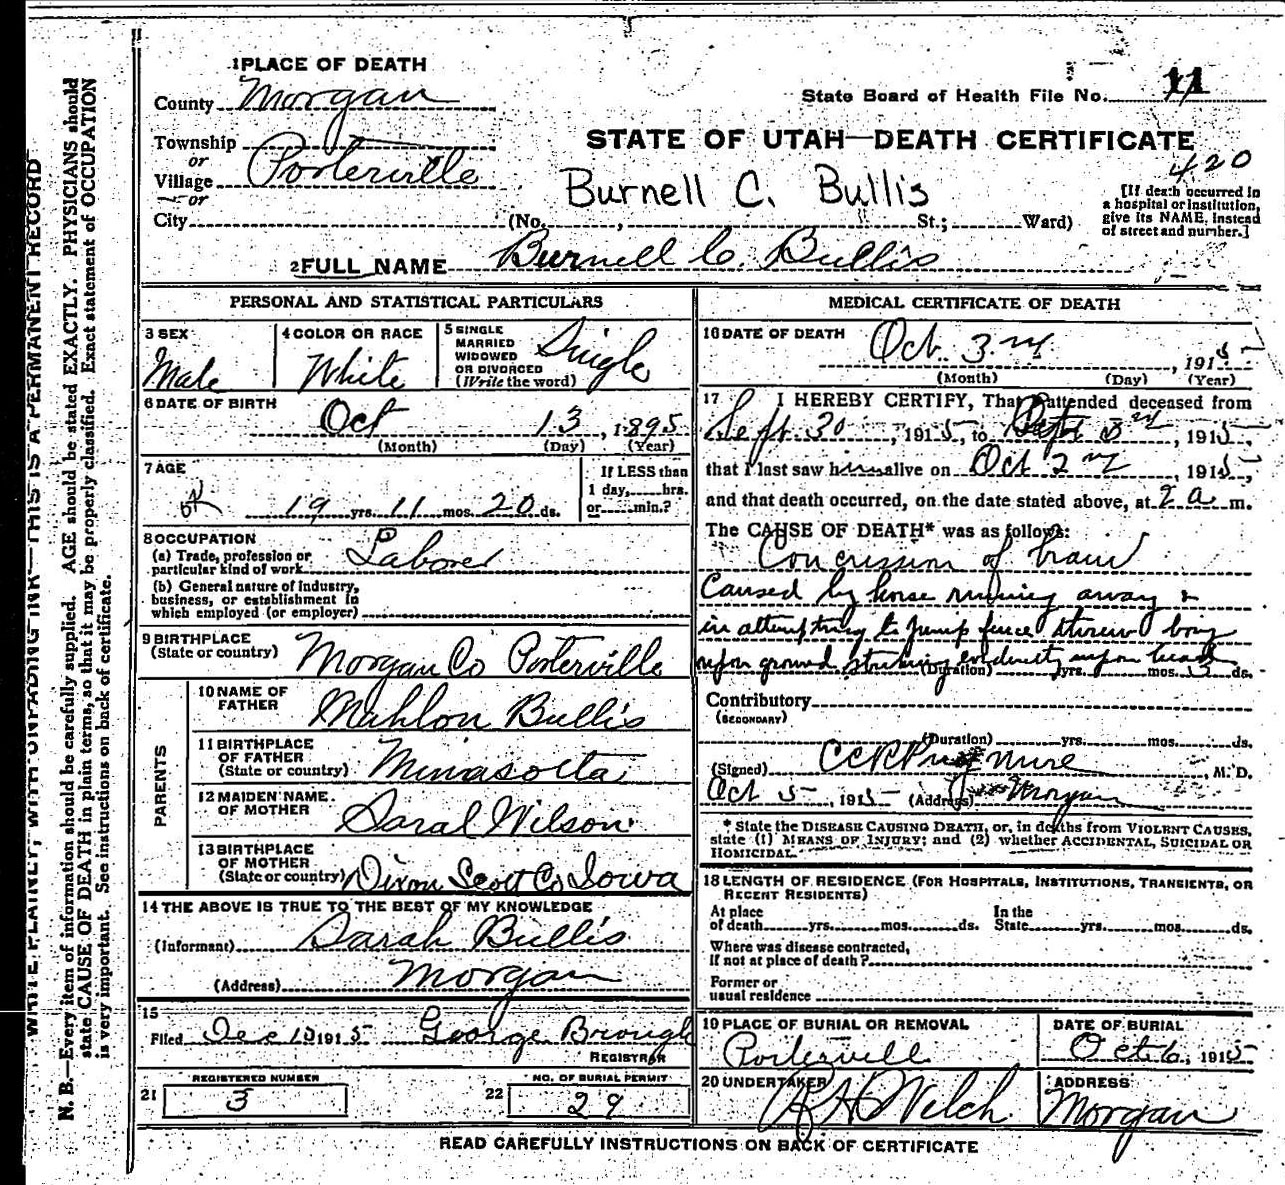 1 PLACE OF DEATH
County Morgan
State Board of Health File No. 11
Township
or
Village Porterville
or
City
STATE OF UTAH—DEATH CERTIFICATE
420
Burnell C. Bullis
(No. , St.; Ward)
[If death occurred in
a hospital or institution,
give its NAME, instead
of street and number.]
2 FULL NAME Burnell C. Bullis
PERSONAL AND STATISTICAL PARTICULARS
3 SEX
Male
4 COLOR OR RACE
White
5 SINGLE
MARRIED
WIDOWED
OR DIVORCED
(Write the word)
Single
6 DATE OF BIRTH
Oct 13, 1895
(Month) (Day) (Year)
7 AGE
19 yrs. 11 mos. 20 ds.
If LESS than
1 day, hrs.
or min.?
8 OCCUPATION
(a) Trade, profession or
particular kind of work Laborer
(b) General nature of industry,
business, or establishment in
which employed (or employer)
9 BIRTHPLACE
(State or country) Morgan Co Porterville
PARENTS
10 NAME OF
FATHER Mahlon Bullis
11 BIRTHPLACE
OF FATHER
(State or country) Minasotta
12 MAIDEN NAME
OF MOTHER Sarah Wilson
13 BIRTHPLACE
OF MOTHER
(State or country) Dixon Scott Co Iowa
14 THE ABOVE IS TRUE TO THE BEST OF MY KNOWLEDGE
(Informant) Sarah Bullis
(Address) Morgan
15
Filed Dec 10 1915 George Brough
REGISTRAR
REGISTERED NUMBER
21 3
NO. OF BURIAL PERMIT
22 29
MEDICAL CERTIFICATE OF DEATH
16 DATE OF DEATH Oct. 3rd, 1915
(Month) (Day) (Year)
17 I HEREBY CERTIFY, That I attended deceased from
Sept. 30, 1915, to 3rd, 1915,
that I last saw him alive on Oct 2nd, 1915,
and that death occurred, on the date stated above, at 2 a m.
The CAUSE OF DEATH* was as follows:
Concussion of brain
Caused by horse running away &
in attempting to jump fence threw boy
upon ground striking evidently upon head
(Duration) yrs. mos. 3 ds.
Contributory
(SECONDARY)
(Duration) yrs. mos. ds.
(Signed) M. D.
Oct 5, 1915 (Address) Morgan
* State the DISEASE CAUSING DEATH, or, in deaths from VIOLENT CAUSES,
state (1) MEANS OF INJURY; and (2) whether ACCIDENTAL, SUICIDAL OR
HOMICIDAL.
18 LENGTH OF RESIDENCE (FOR HOSPITALS, INSTITUTIONS, TRANSIENTS, OR
RECENT RESIDENTS)
At place
of death yrs. mos. ds.
In the
State yrs. mos. ds.
Where was disease contracted,
if not at place of death?
Former or
usual residence
19 PLACE OF BURIAL OR REMOVAL
Porterville
DATE OF BURIAL
Oct 6, 1915
20 UNDERTAKER
R H Welch
ADDRESS
Morgan
READ CAREFULLY INSTRUCTIONS ON BACK OF CERTIFICATE
WRITE PLAINLY, WITH UNFADING INK—THIS IS A PERMANENT RECORD
N. B.—Every item of information should be carefully supplied. AGE should be stated EXACTLY. PHYSICIANS should
state CAUSE OF DEATH in plain terms, so that it may be properly classified. Exact statement of OCCUPATION
is very important. See instructions on back of certificate.